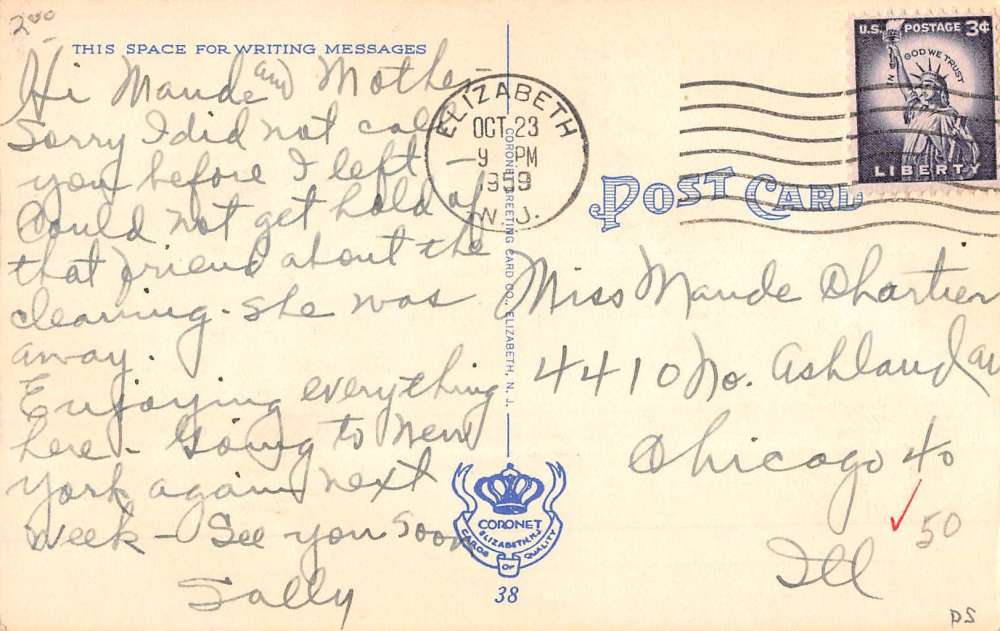 200
THIS SPACE FOR WRITING MESSAGES
Hi Maude and Mother
Sorry I did not call
you before I left —
Could not get hold of
that friend about the
cleaning. She was
away.
Enjoying everything
here. Going to New
York again next
week — See you soon
Sally
ELIZABETH
OCT 23
9 PM
N.J.
CORONET GREETING CARD CO., ELIZABETH, N. J.
CORONET
ELIZABETH, N.J.
CARDS OF QUALITY
38
U.S. POSTAGE 3¢
IN GOD WE TRUST
LIBERTY
POST CARD
Miss Maude Chartier
4410 No. Ashland Av
Chicago 40
Ill
50
DS